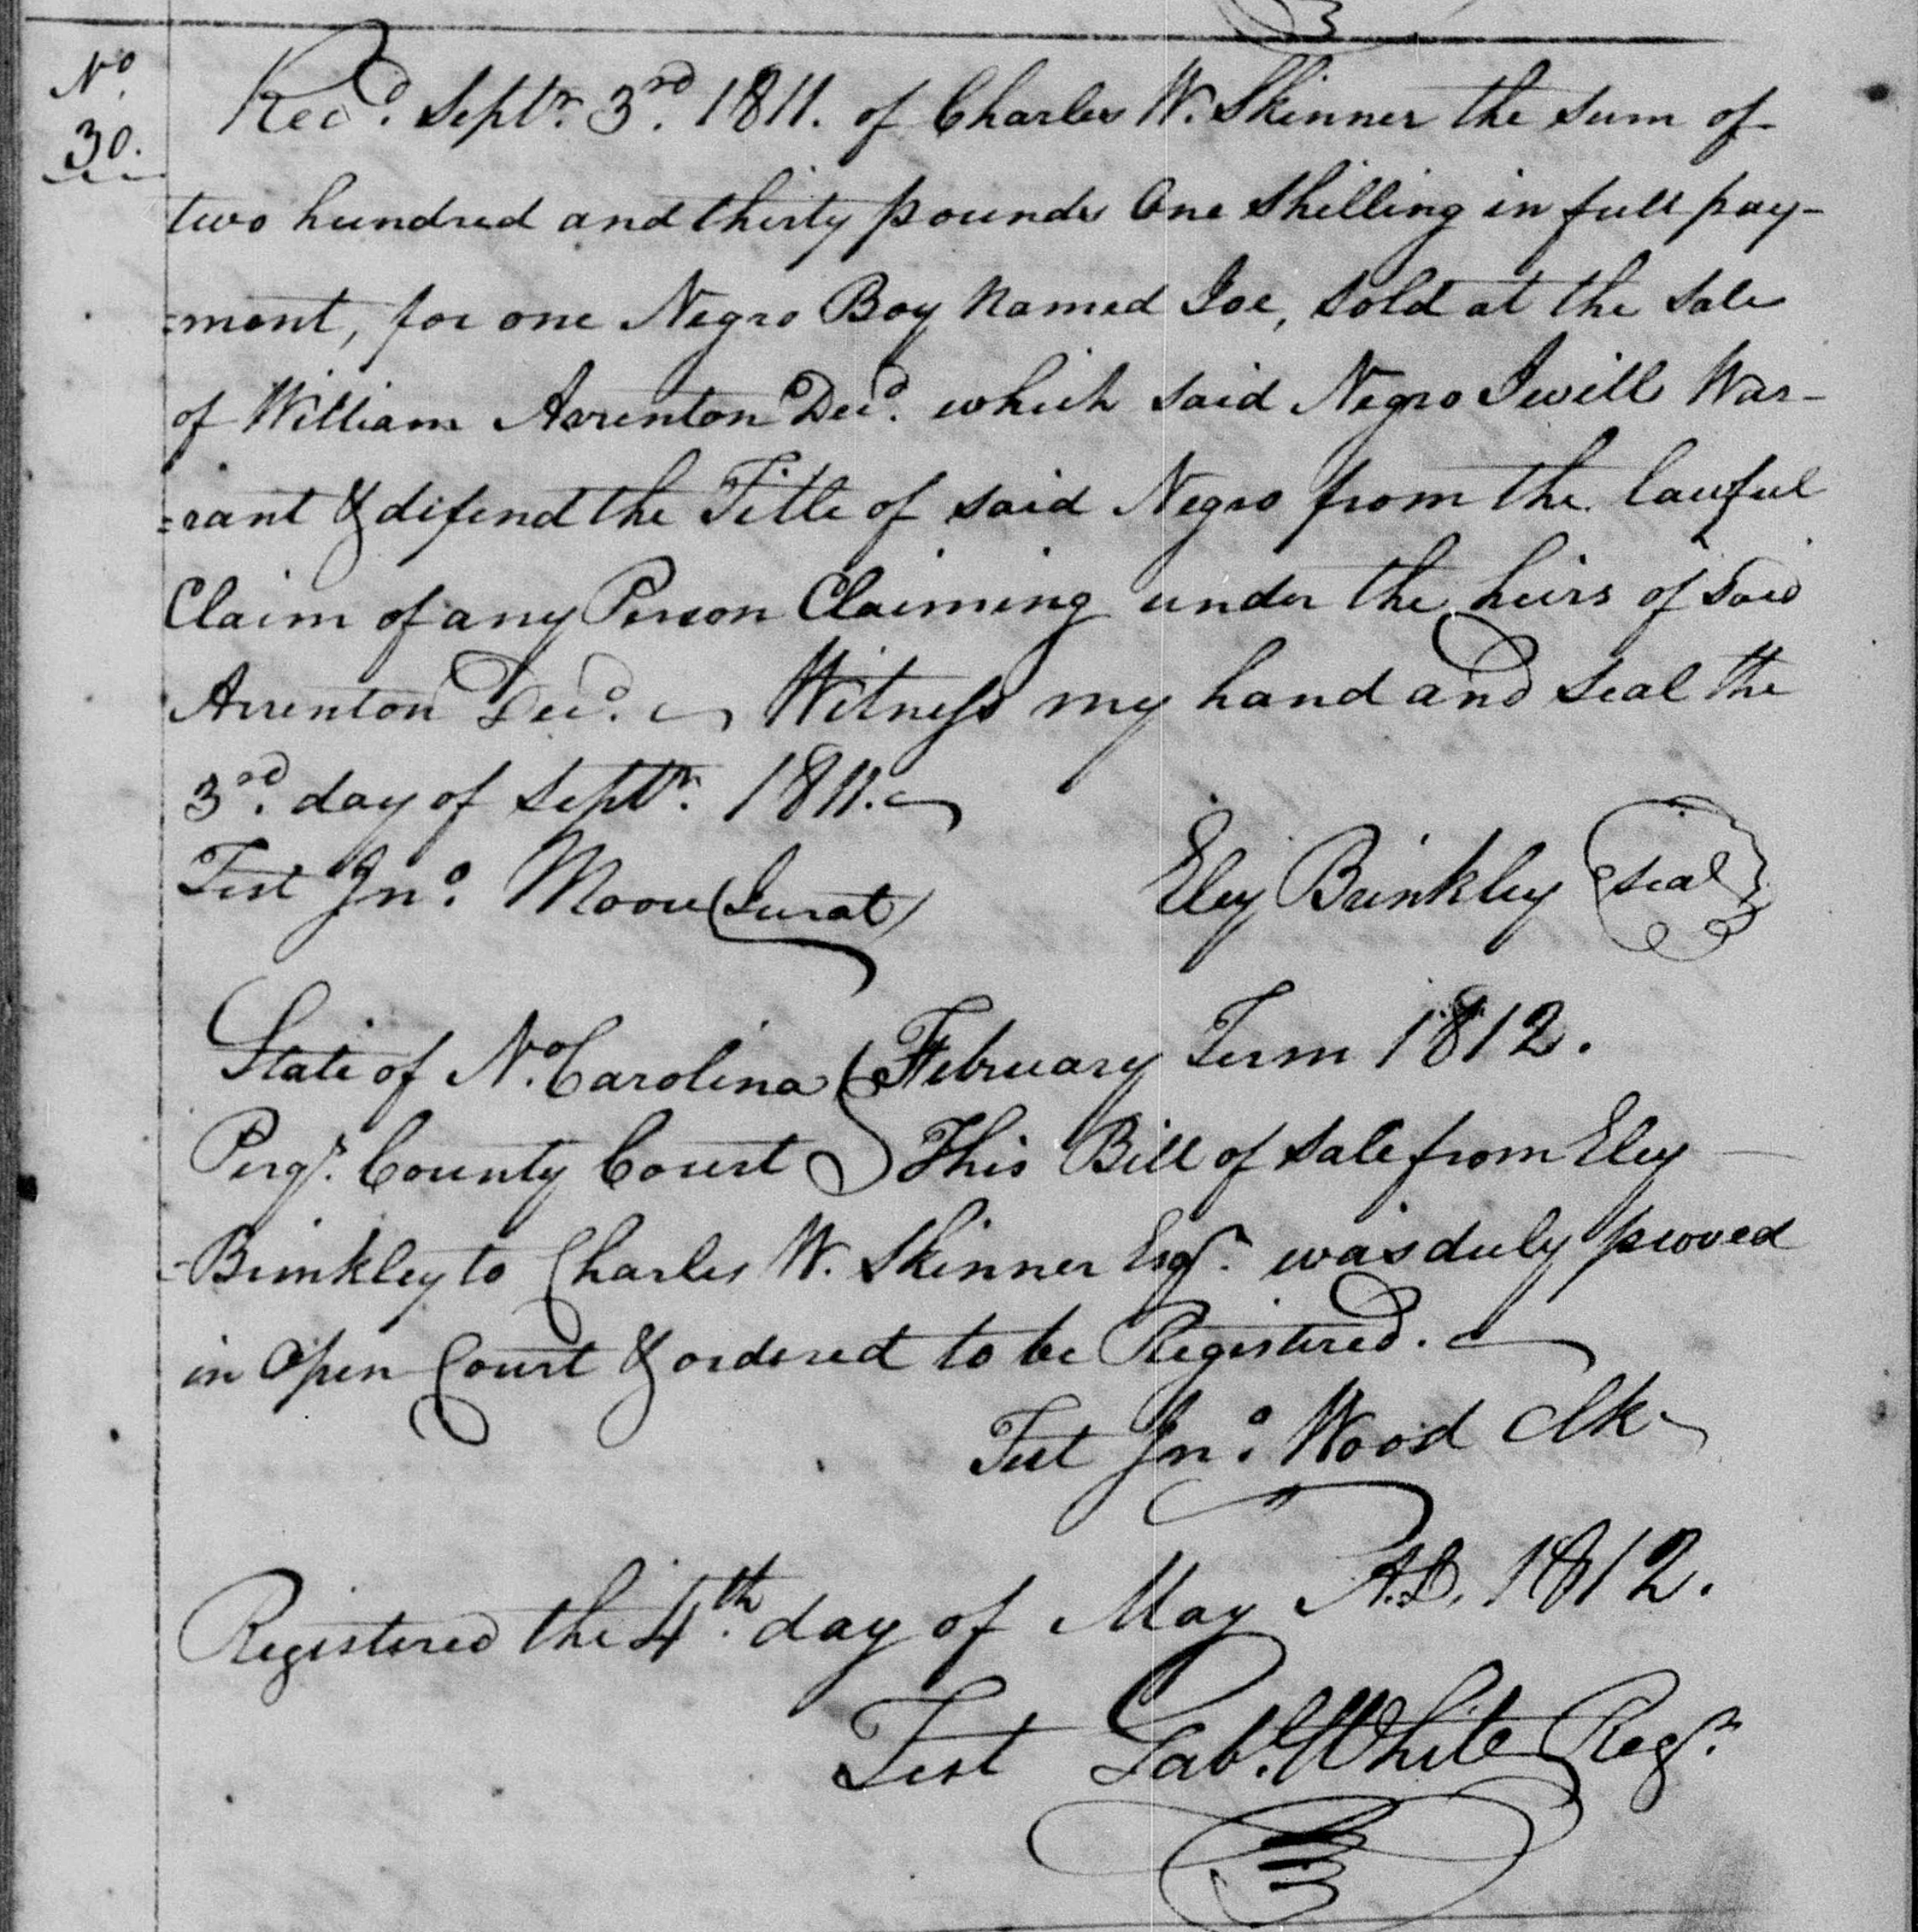 No.
30.
Recd. Septr. 3rd. 1811. of Charles W. Skinner the sum of
two hundred and thirty pounds One Shilling in full pay-
=ment, for one Negro Boy Named Joe, sold at the sale
of William Arrenton Decd. which said Negro I will War-
=rant & difend the Title of said Negro from the lawful
Claim of any Person Claiming under the heirs of said
Arrenton Decd. Witness my hand and seal the
3rd. day of Septr. 1811.
Test Jno. Moore (Jurat) Eley Brinkley seal
State of No. Carolina February Term 1812.
Perqs. County Court This Bill of sale from Eley
Brinkley to Charles W. Skinner Esqr. was duly proved
in Open Court & ordered to be Registered.
Test Jno. Wood Clk
Registered the 4th. day of May A.D. 1812.
Test Gab. White Regr.